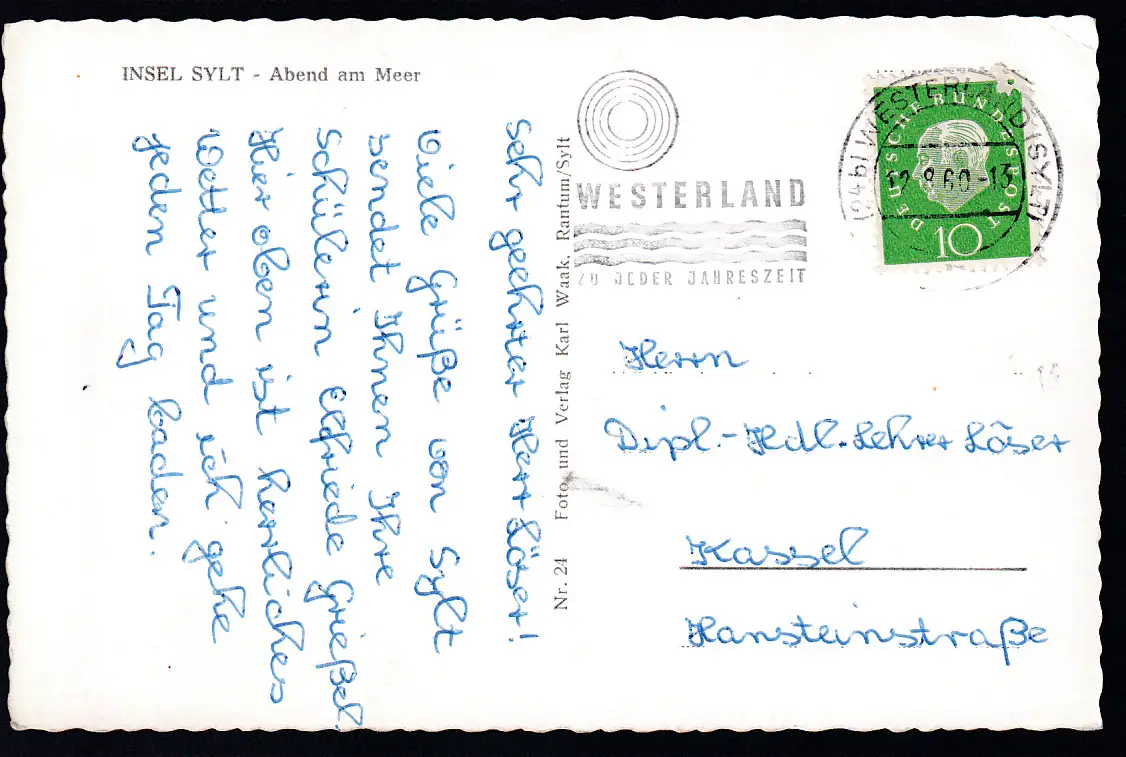 INSEL SYLT - Abend am Meer
Sehr geehrter Herr Löser!
Viele Grüße von Sylt
sendet Ihnen Ihre
Schülerin Elfriede Grießel.
Hier oben ist herrliches
Wetter und ich gehe
jeden Tag baden.
Nr. 24 Foto und Verlag Karl Waak, Rantum/Sylt
WESTERLAND
ZU JEDER JAHRESZEIT
(24b) WESTERLAND (SYLT)
12.8.60-13
DEUTSCHE BUNDESPOST
10
Herrn
Dipl.-Hdl. Lehrer Löser
Kassel
Hansteinstraße